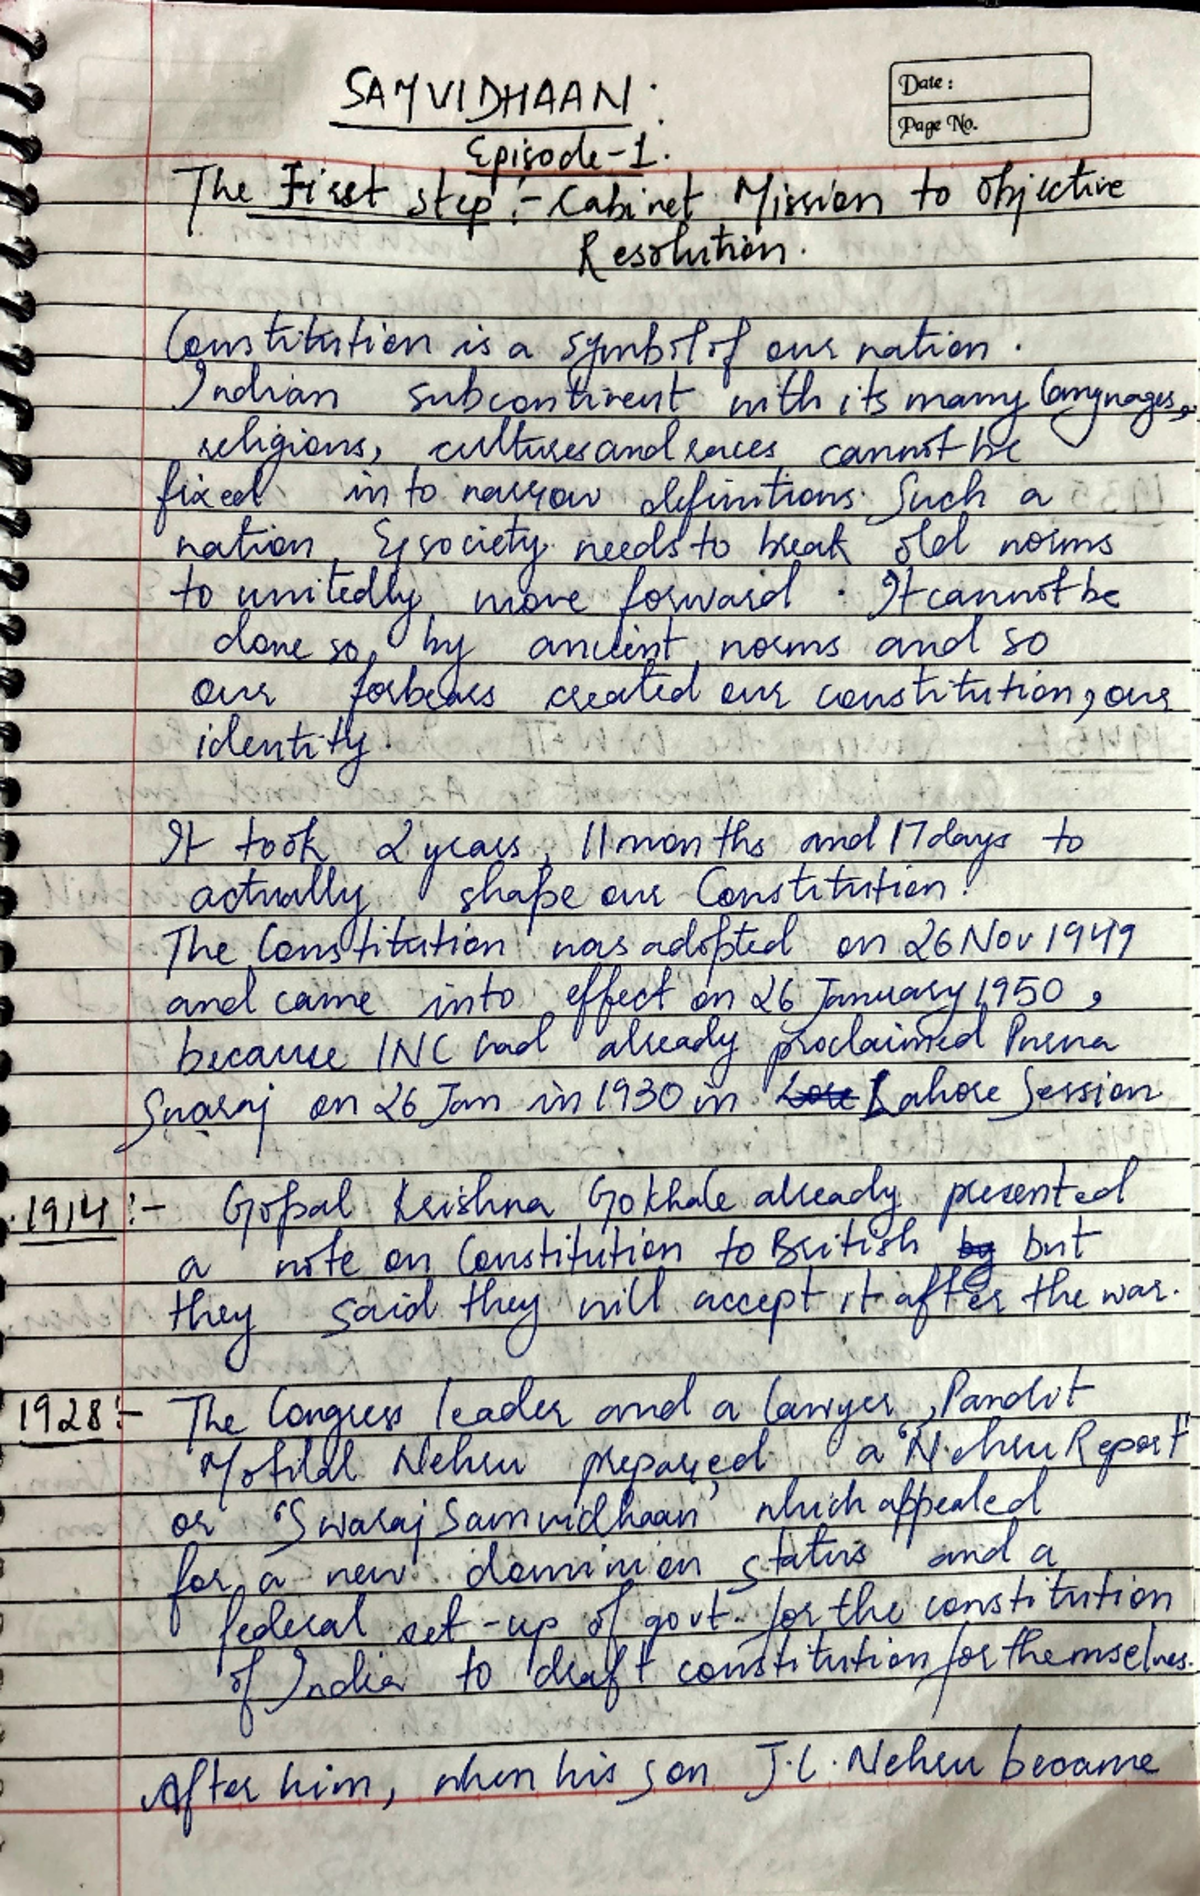 SAMVIDHAAN.
Date :
Page No.
Episode-1.
The First step :- Cabinet Mission to Objective
Resolution.
Constitution is a symbol of our nation.
Indian subcontinent with its many languages,
religions, cultures and races cannot be
fixed into narrow definitions. Such a
nation & society needs to break old norms
to unitedly move forward. It cannot be
done so, by ancient norms and so
our forbears created our constitution, our
identity.
It took 2 years, 11 months and 17 days to
actually shape our Constitution.
The Constitution was adopted on 26 Nov 1949
and came into effect on 26 January 1950,
because INC had already proclaimed Purna
Swaraj on 26 Jan in 1930 in Lahore Session
1914 :- Gopal Krishna Gokhale already presented
a note on Constitution to British by but
they said they will accept it after the war.
1928 :- The Congress leader and a lawyer, Pandit
Motilal Nehru prepared a "Nehru Report"
or 'Swaraj Samvidhaan' which appealed
for a new dominion status and a
federal set-up of govt. for the constitution
of India to draft constitution for themselves.
After him, when his son J.L. Nehru became